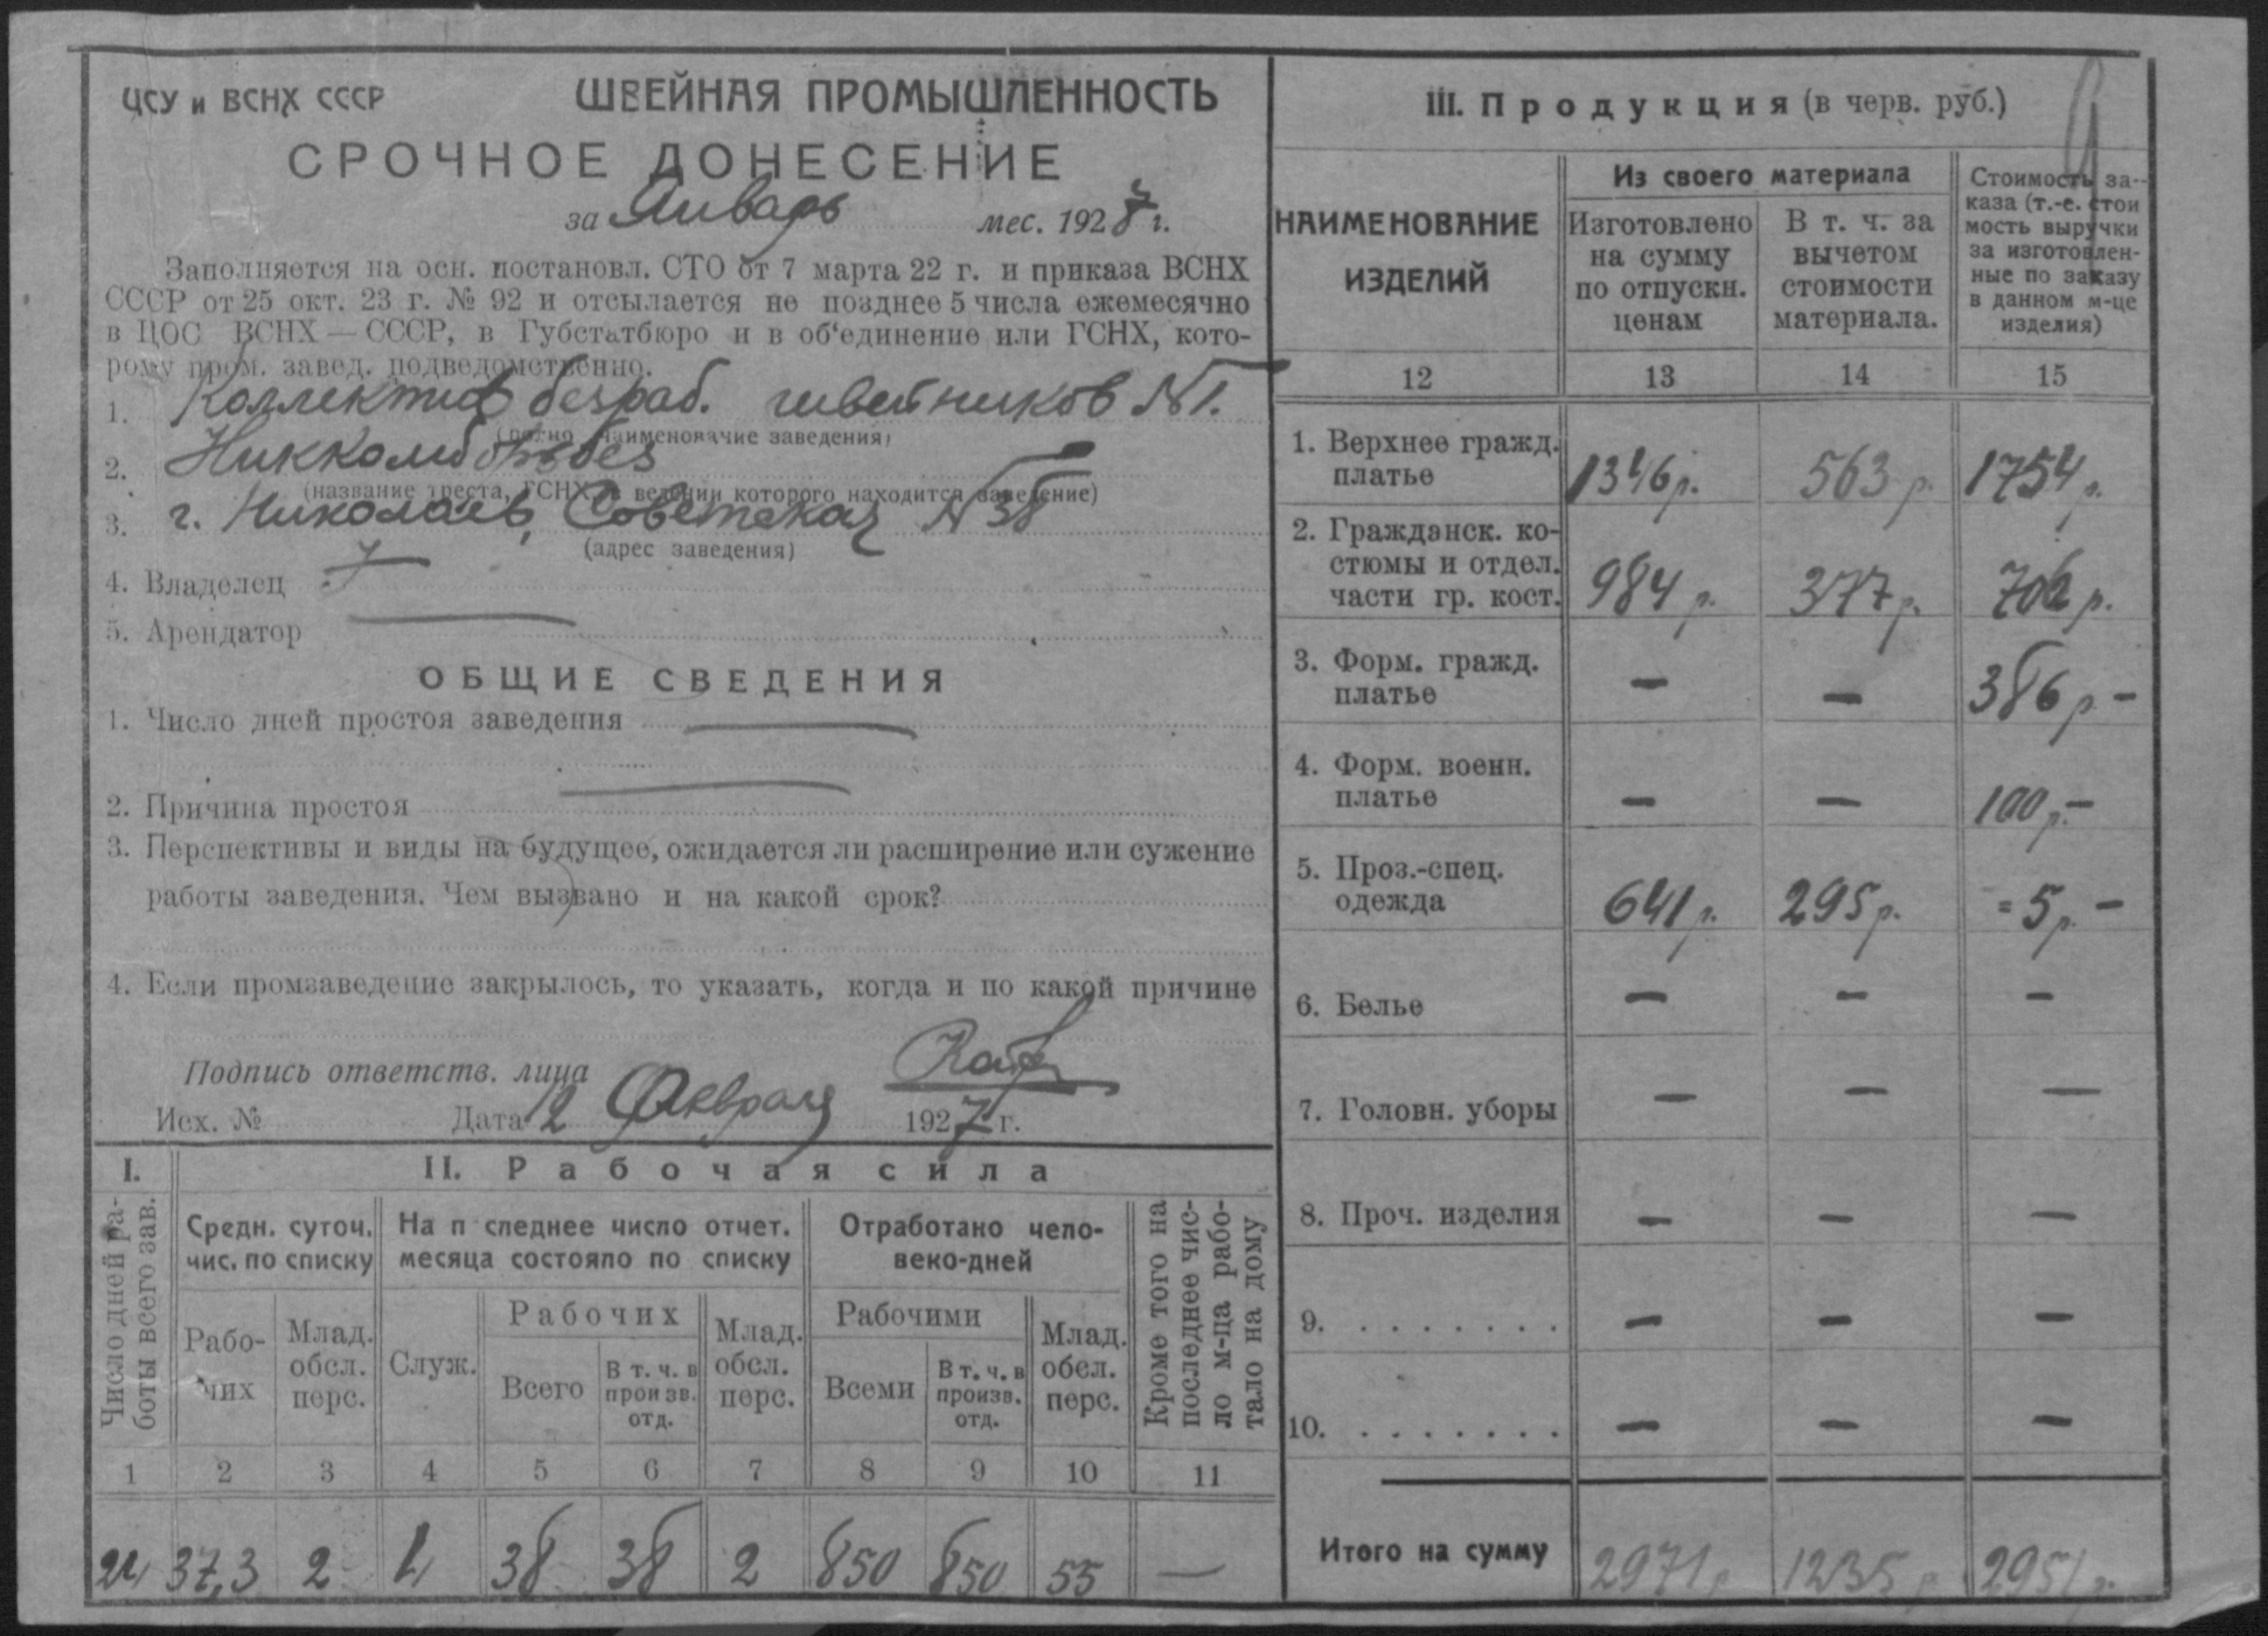 ЦСУ и ВСНХ СССР
ШВЕЙНАЯ ПРОМЫШЛЕННОСТЬ
СРОЧНОЕ ДОНЕСЕНИЕ
за Январь мес. 1927 г.
Заполняется на осн. постановл. СТО от 7 марта 22 г. и приказа ВСНХ
СССР от 25 окт. 23 г. № 92 и отсылается не позднее 5 числа ежемесячно
в ЦОС ВСНХ — СССР, в Губстатбюро и в об‘единение или ГСНХ, кото-
рому пром. завед. подведомственно.
1. Коллектив безраб. швейников №1.
(полно наименование заведения)
2.
(название треста, ГСНХ, в ведении которого находится заведение)
3. г. Николаев, Советская №38
(адрес заведения)
4. Владелец —
5. Арендатор —
ОБЩИЕ СВЕДЕНИЯ
1. Число дней простоя заведения —
2. Причина простоя —
3. Перспективы и виды на будущее, ожидается ли расширение или сужение
работы заведения. Чем вызвано и на какой срок?
4. Если промзаведение закрылось, то указать, когда и по какой причине
Подпись ответств. лица
Исх. № Дата 12 Февраля 1927 г.
I.
II. Рабочая сила
Число дней ра-
боты всего зав.
Средн. суточ.
чис. по списку
На п следнее число отчет.
месяца состояло по списку
Отработано чело-
веко-дней
Кроме того на
последнее чис-
ло м-ца рабо-
тало на дому
Рабо-
чих
Млад.
обсл.
перс.
Служ.
Рабочих
Всего
В т. ч. в
произв.
отд.
Млад.
обсл.
перс.
Рабочими
Всеми
В т. ч. в
произв.
отд.
Млад.
обсл.
перс.
1 2 3 4 5 6 7 8 9 10 11
24 37,3 2 4 38 38 2 850 850 55 —
III. Продукция (в черв. руб.)
9
НАИМЕНОВАНИЕ
ИЗДЕЛИЙ
Из своего материала
Изготовлено
на сумму
по отпускн.
ценам
В т. ч. за
вычетом
стоимости
материала.
Стоимость за-
каза (т.-е. стои
мость выручки
за изготовлен-
ные по заказу
в данном м-це
изделия)
12 13 14 15
1. Верхнее гражд.
платье 1346 р. 563 р. 1754 р.
2. Гражданск. ко-
стюмы и отдел.
части гр. кост. 984 р. 377 р. 706 р.
3. Форм. гражд.
платье — — 386 р —
4. Форм. военн.
платье — — 100 р. —
5. Проз.-спец.
одежда 641 р. 295 р. = 5 р. —
6. Белье — — —
7. Головн. уборы — — —
8. Проч. изделия — — —
9. . . . . . . . — — —
10. . . . . . . . — — —
Итого на сумму 2971 р 1235 р 2951 р.